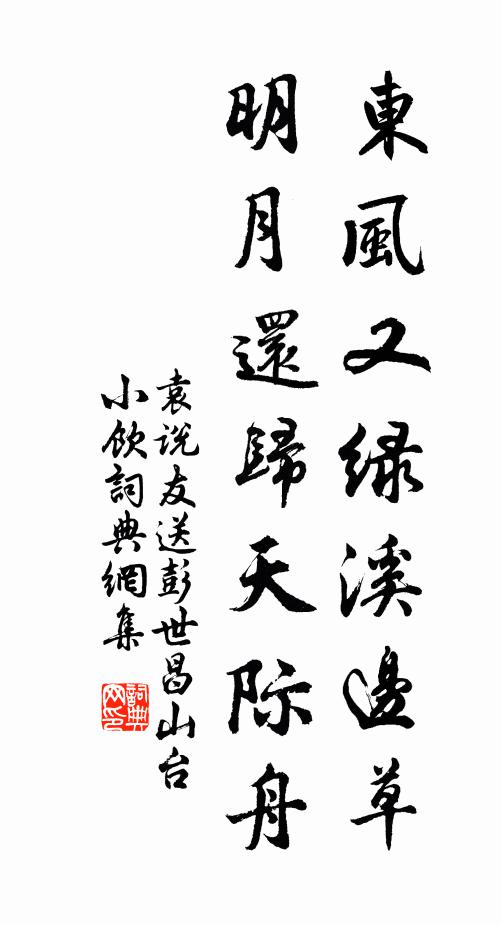 東風又绿溪邊草
明月還歸天际舟
袁说友送彭世昌山台
小飲詞典網集
詞典
网印